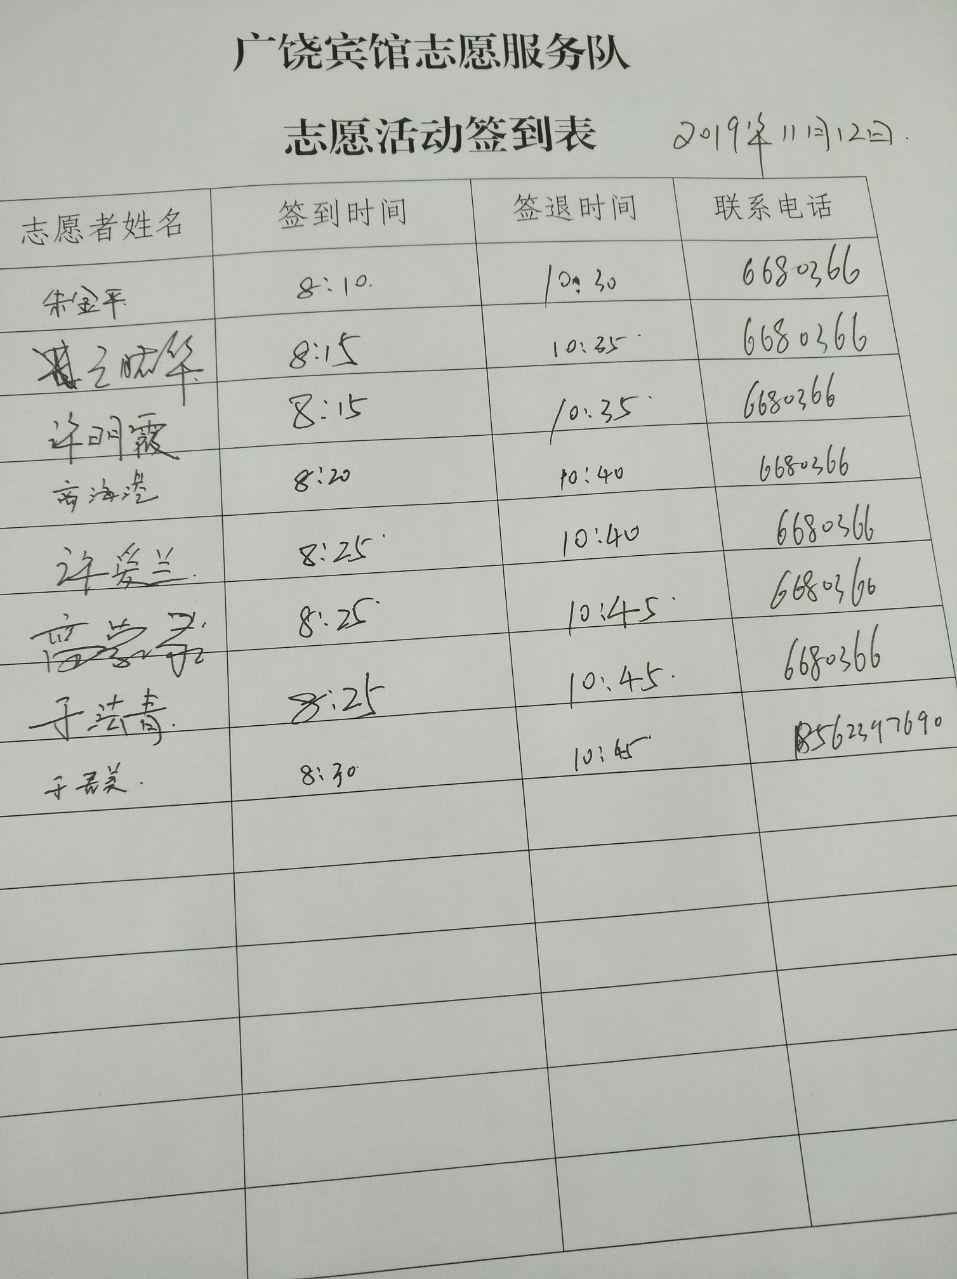 广饶宾馆志愿服务队
志愿活动签到表 2019年11月12日.
志愿者姓名 签到时间 签退时间 联系电话
朱金平 8:10 10:30 6680366
8:15 10:35 6680366
许明霞 8:15 10:35 6680366
商海港 8:20 10:40 6680366
许爱兰 8:25 10:40 6680366
8:25 10:45 6680366
于洪青 8:25 10:45 6680366
于君美 8:30 10:45 18562397690